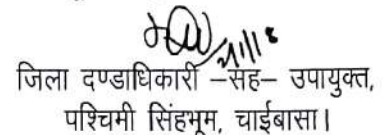 जिला दण्डाधिकारी –सह– उपायुक्त,
पश्चिमी सिंहभूम, चाईबासा।